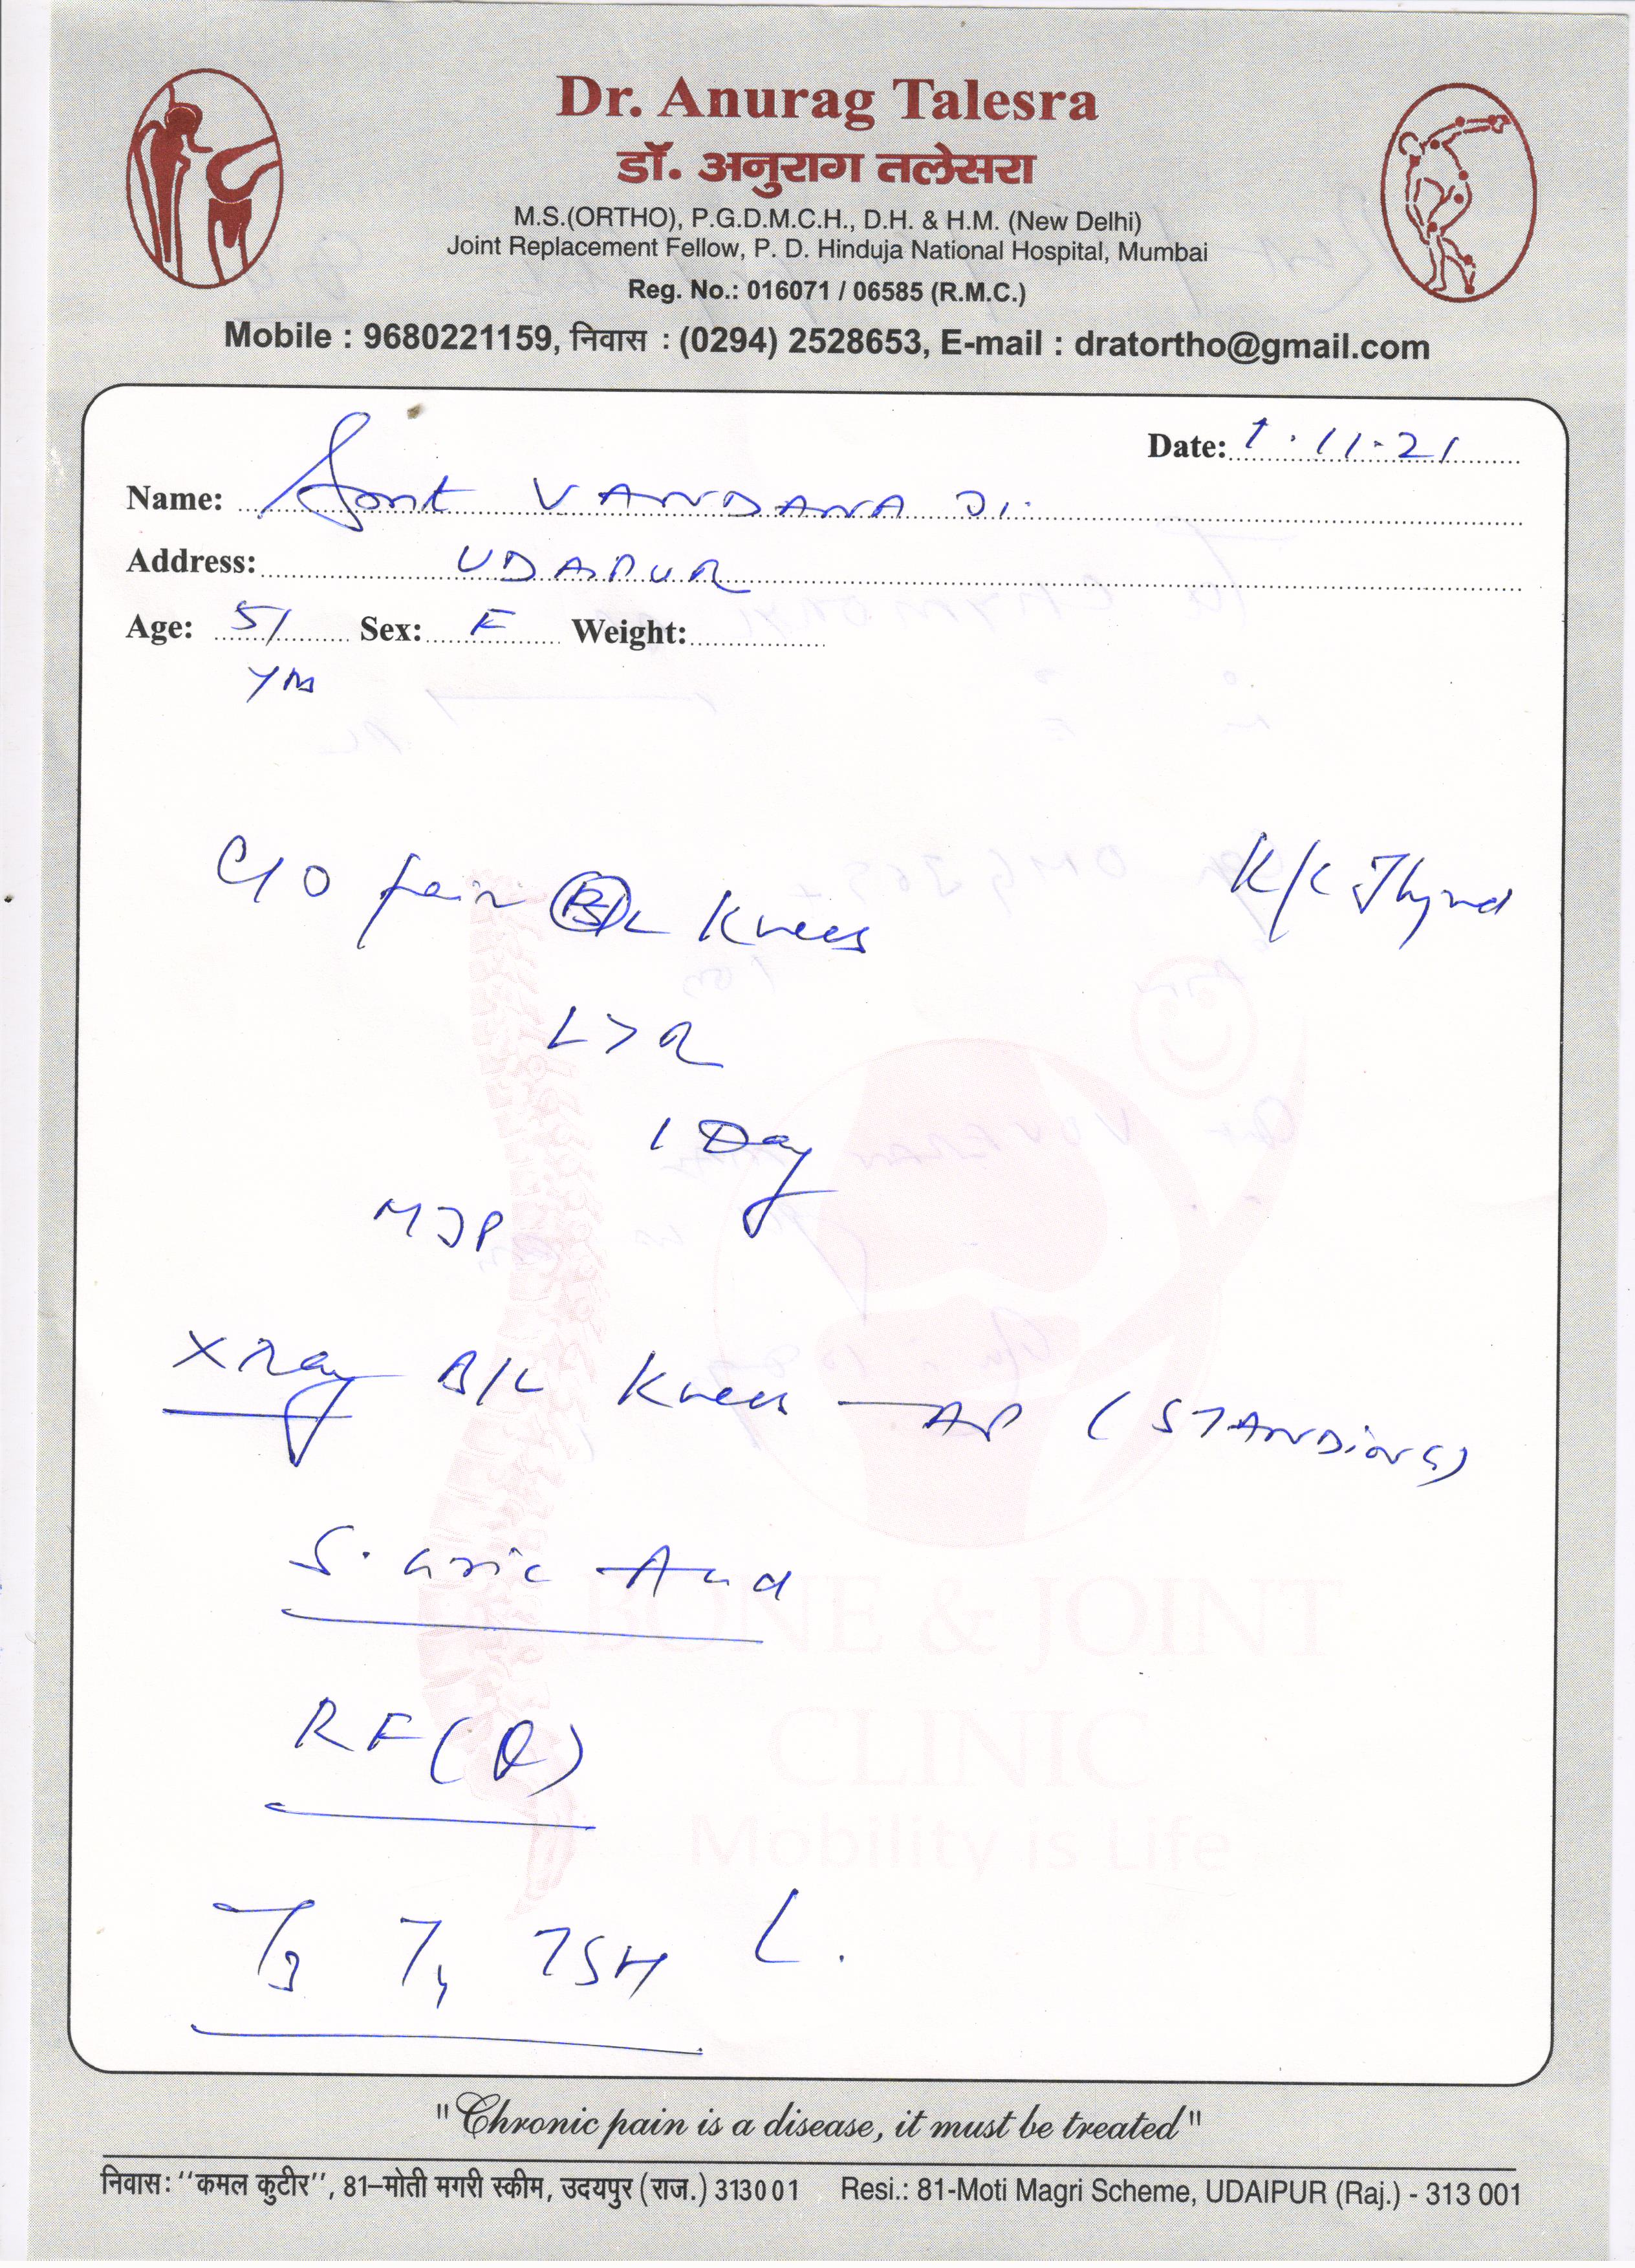 Dr. Anurag Talesra
डॉ. अनुराग तलेसरा
M.S.(ORTHO), P.G.D.M.C.H., D.H. & H.M. (New Delhi)
Joint Replacement Fellow, P. D. Hinduja National Hospital, Mumbai
Reg. No.: 016071 / 06585 (R.M.C.)
Mobile : 9680221159, निवास : (0294) 2528653, E-mail : dratortho@gmail.com
Date: 1.11.21
Name: Smt VANDANA Ji
Address: UDAIPUR
Age: 51 Sex: F Weight:
yrs
C/O pain B/L Knees K/C Thyroid
L > R
1 Day
MJP
X Ray B/L Knees - AP (STANDING)
S. Uric Acid
BONE & JOINT
RF (Q)
CLINIC
Mobility is Life
T3 T4 TSH
"Chronic pain is a disease, it must be treated"
निवास: ''कमल कुटीर'', 81–मोती मगरी स्कीम, उदयपुर (राज.) 313001 Resi.: 81-Moti Magri Scheme, UDAIPUR (Raj.) - 313 001